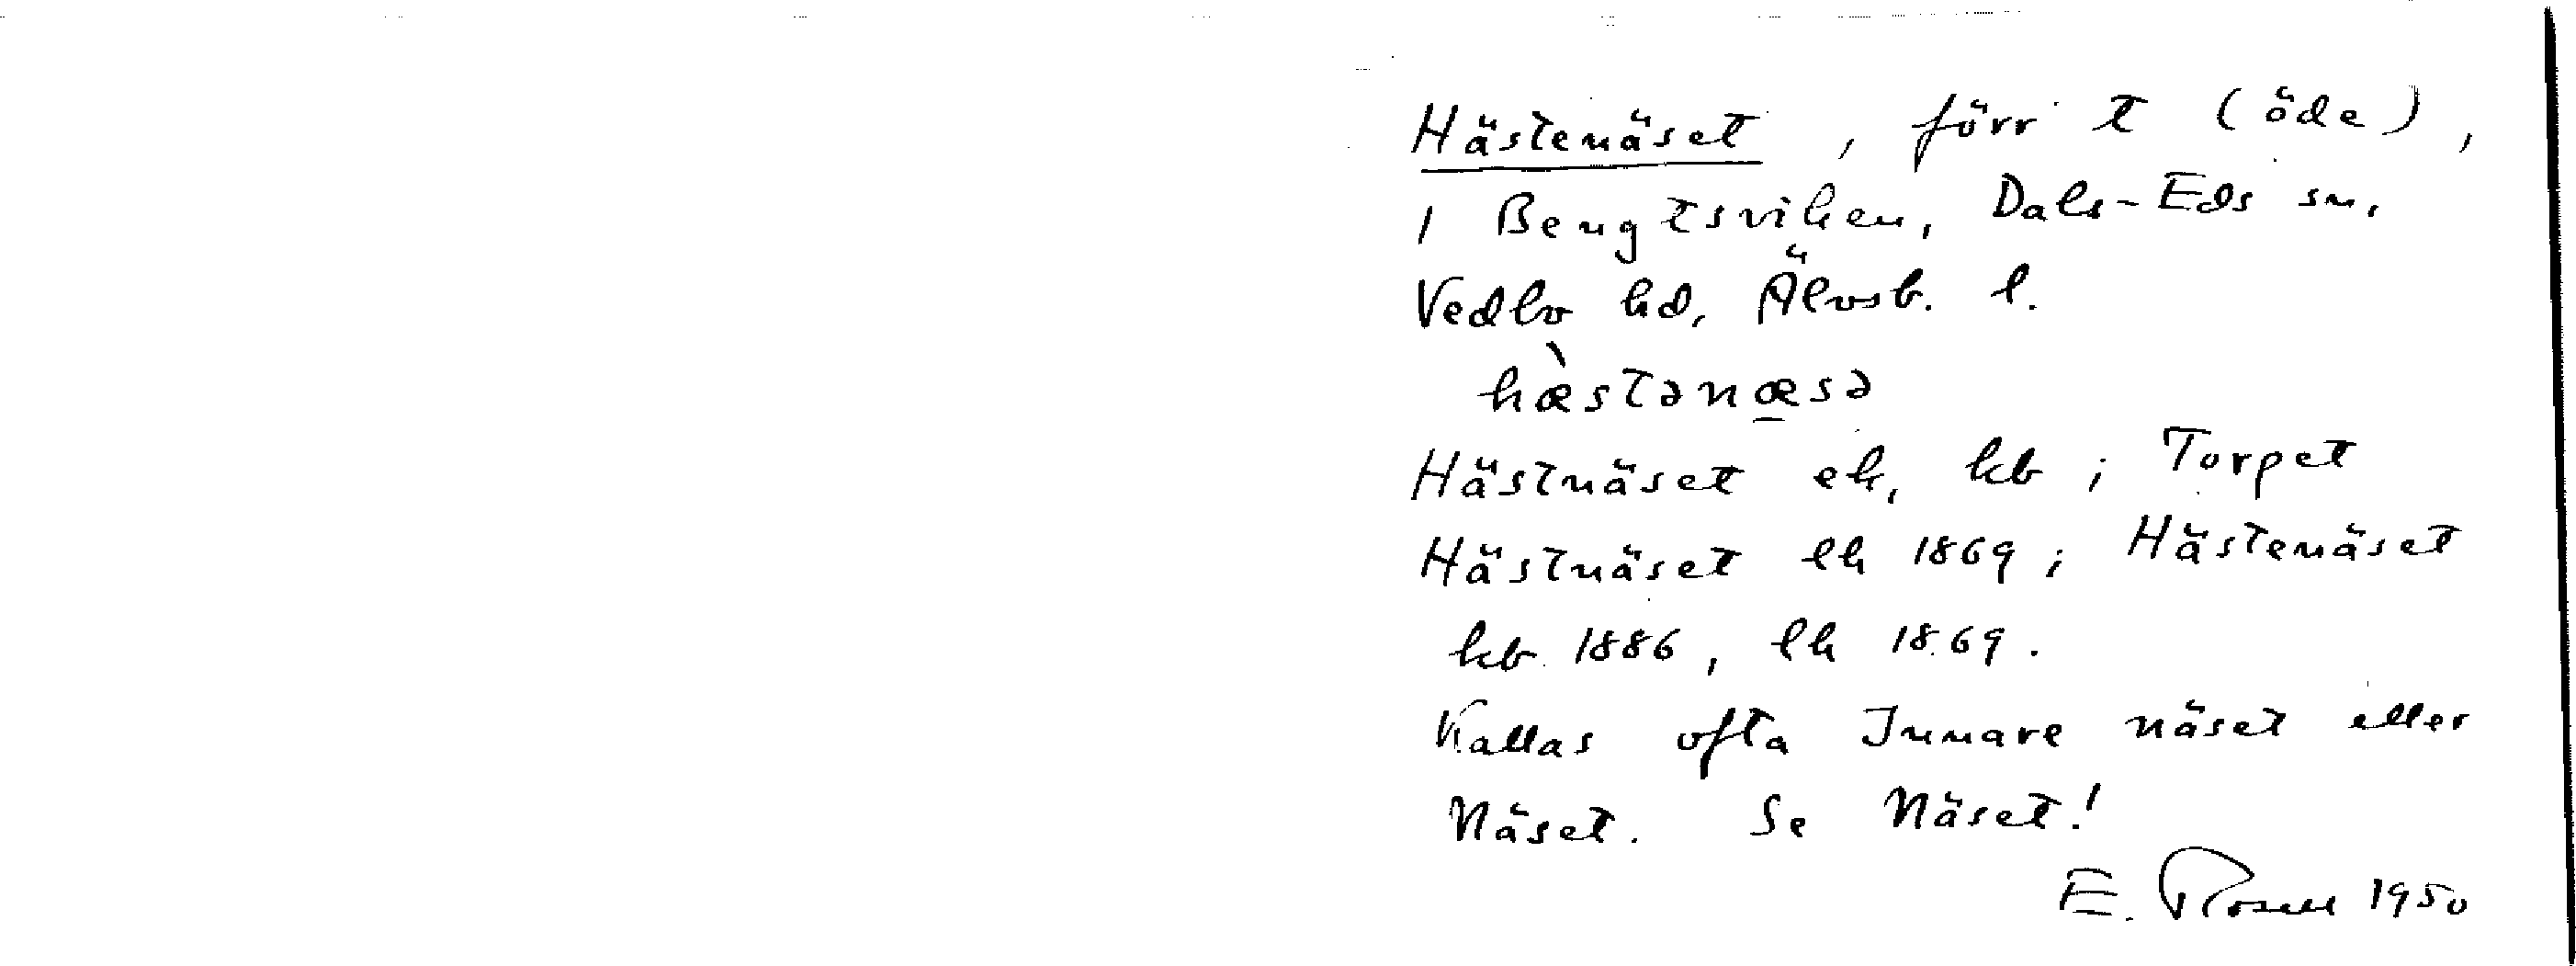 Hästenäset, förr t (öde),
1 Bengtsviken, Dals-Eds sn,
Vedbo hd, Älvsb. l.
hæ̀stənæ̱sə
Hästnäset ek, kb; Torpet
Hästnäset lh 1869; Hästenäset
kb 1886, lh 1869.
Kallas ofta Innare näset eller
Näset. Se Näset!
E. Rosell 1950